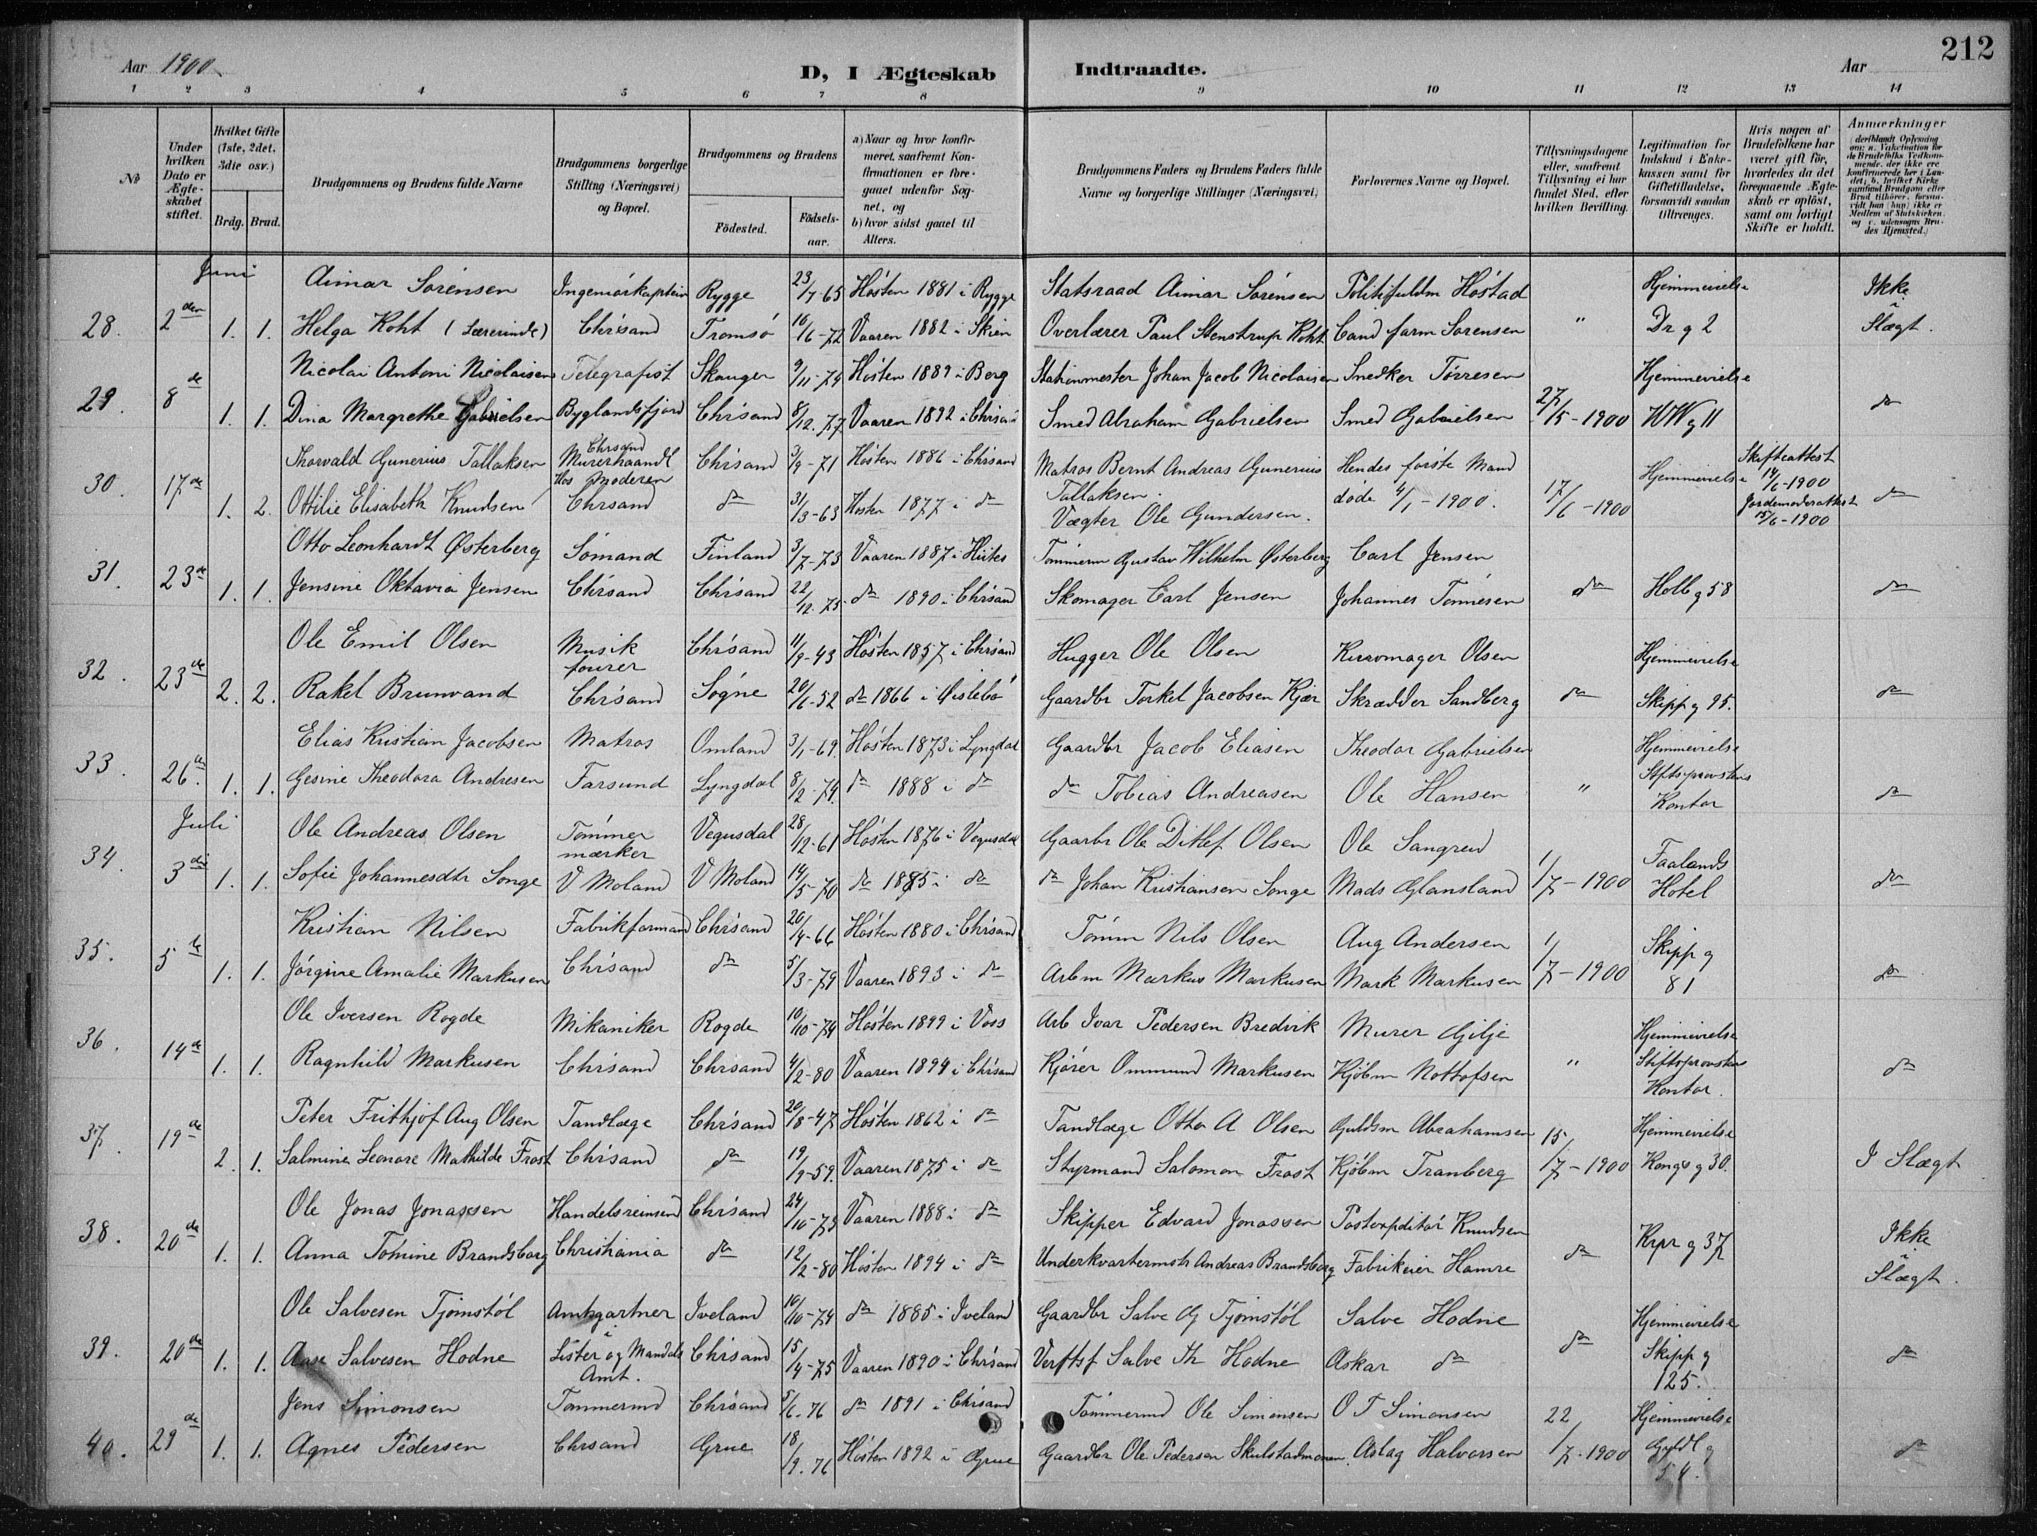 212
Aar 1900
D, I Ægteskab Indtraadte.
Aar
1 2 3 4 5 6 7 8 9 10 11 12 13 14
No
Under hvilken Dato er Ægteskabet stiftet.
Hvilket Gifte (1ste, 2det, 3die osv.)
Brdg. Brud.
Brudgommens og Brudens fulde Navne
Brudgommens borgerlige Stilling (Næringsvei) og Bopæl.
Brudgommens og Brudens
Födested.
Födselsaar.
a) Naar og hvor konfirmeret, saafremt Konfirmationen er foregaaet udenfor Sognet, og
b) hvor sidst gaaet til Alters.
Brudgommens Faders og Brudens Faders fulde Navne og borgerlige Stillinger (Næringsvei)
Forlovernes Navne og Bopæl.
Tillysningsdagene eller, saafremt Tillysning ei har fundet Sted, efter hvilken Bevilling.
Legitimation for Indskud i Enkekassen samt for Giftetilladelse, forsaavidt saadan tiltrænges.
Hvis nogen af Brudefolkene har været gift för, hvorledes da det foregaaende Ægteskab er oplöst, samt om lovligt Skifte er holdt.
Anmærkninger
(deriblandt Oplysning om: a. Vakcination for de Brudefolks Vedkommende, der ikke ere konfirmerede her i Landet; b. hvilket Kirkesamfund Brudgom eller Brud tilhörer, forsaavidt han (hun) ikke er Medlem af Statskirken, og c. udensogns Brudes Hjemsted.)
Juni
28. 2den 1. 1. Aimar Sörensen Ingeniörkaptein Rygge 23/7-65 Hösten 1881 i Rygge Statsraad Aimar Sörensen Politifuldm Höstad Hjemmevielse Ikke i
Helga Koht (Lærerinde) Chrsand Tromsö 16/6-72 Vaaren 1882 i Skien Overlærer Paul Stenstrup Koht Cand farm Sorensen " Dr g 2 Slægt.
29. 8de 1. 1. Nicolai Antoni Nicolaisen Telegrafist Skouger 9/11-74 Hösten 1889 i Berg Stationmester Johan Jacob Nicolaisen Snedker Törresen Hjemmevielse
Dina Margrethe Gabrielsen Byglandsfjord Chrsand 8/12.77 Vaaren 1892 i Chrsand Smed Abraham Gabrielsen Smed Gabrielsen 27/5-1900 WW g 11 do
30. 17de 1. 2. Thorvald Gunerius Tallaksen Chrsand Murerhaandl hos Moderen Chrsand 3/9-71 Hösten 1886 i Chrsand Matros Bernt Andreas Gunerius Tallaksen. Hendes förste Mand Hjemmevielse Skifteattest 14/6-1900
Ottilie Elisabeth Knudsen Chrsand do 31/3-63 Hosten 1877 i do Vægter Ole Gundersen. döde 4/1-1900. 17/6-1900 Jordemoderattest 15/6-1900 do
31. 23de 1. 1. Otto Leonhardt Østerberg Sömand Finland 3/7-73 Vaaren 1887 i Hiitis Tömmerm Gustav Wilhelm Østerberg Carl Jensen
Jensine Oktavia Jensen Chrsand Chrsand 22/12.73 do 1890 i Chrsand Skomager Carl Jensen Johannes Tönnesen do Holb g 58 do
32. 23de 2. 2. Ole Emil Olsen Musikfourer Chrsand 11/9-43 Hösten 1857 i Chrsand Hugger Ole Olsen Kurvmager Olsen Hjemmevielse
Rakel Brunvand Chrsand Sögne 20/6-52 do 1866 i Øislebö Gaardbr Torkel Jacobsen Kjær Skrædder Sandberg do Skipp g 95. do
33. 26de 1. 1. Elias Kristian Jacobsen Matros Omland 3/1-69. Hösten 1873 i Lyngdal Gaardbr Jacob Eliasen Theodor Gabrielsen Hjemmevielse
Gesine Theodora Andresen Farsund Lyngdal 8/2-74. do 1888 i do do Tobias Andreasen Ole Hansen " Stiftsprovstens Kontor do
Juli
34. 3die 1. 1. Ole Andreas Olsen Tömmermærker Vegusdal 28/12-61 Hösten 1876 i Vegusdal Gaarbr Ole Ditlef Olsen Ole Sangren
Sofie Johannesdtr Songe V Moland V Moland 14/5-70 do 1885 i do do Johan Kristiansen Songe Mads Glansland 1/7-1900 Faalands Hotel do
35. 5te 1. 1. Kristian Nilsen Fabrikforman Chrsand 20/4-66 Hösten 1880 i Chrsand Tömm Nils Olsen Aug Andersen Skipp g
Jörgine Amalie Markusen Chrsand do 5/3-79 Vaaren 1893 i do Arbm Markus Markusen Mark Markusen 1/7-1900 81 do
36. 14de 1. 1. Ole Iversen Rogde Mikaniker Rogde 10/10-74 Hösten 1899 i Voss Arb Ivar Pedersen Bredvik Murer Gilje Hjemmevielse
Ragnhild Markusen Chrsand Chrsand 4/2-80 Vaaren 1894 i Chrsand Kjörer Ommund Markusen Kjöbm Nottofsen " Stiftsprovsten Kontor. do
37. 19de 2. 1. Peter Frithjof Aug Olsen Tandlæge Chrsand 20/8-47 Hösten 1862 i do Tandlæge Otto A Olsen Guldsm Abrahamsen Hjemmevielse
Salmine Leonore Mathilde Frost Chrsand do 19/9-59. Vaaren 1875 i do Styrmand Salomon Frost Kjöbm Tranberg 15/7-1900 Kongs g 30. I Slægt
38. 20de 1. 1. Ole Jonas Jonassen Handelsreisend Chrsand 24/10-73 Vaaren 1888 i do Skipper Edvard Jonassen Postexpditör Knudsen Ikke i
Anna Tomine Brandsborg Christiania do 12/2-80 Hösten 1894 i do Underkvartermstr Andreas Brandsborg Fabrikeier Hamre do Krpr g 37 Slægt.
39. 20de 1. 1. Ole Salvesen Tjomstöl Amtsgartner i Iveland 10/10-74 do 1885 i Iveland Gaardbr Salve Tjomstöl Salve Hodne Hjemmevielse
Aase Salvesen Hodne Lister og Mandals Amt. Chrsand 15/4-75 Vaaren 1890 i Chrsand Verftsf Salve Th Hodne Askar do do Skipp g 125. do
40. 29de 1. 1. Jens Simonsen Tömmermd Chrsand 5/6.76 do 1891 i Chrsand Tömmermd Ole Simonsen O T Simonsen Hjemmevielse
Agnes Pedersen Chrsand Grue 18/9.76 Hösten 1892 i Grue Gaardbr Ole Pedersen Skulstadmoen Aslag Halvorsen 22/7-1900 Gyldl g 54. do